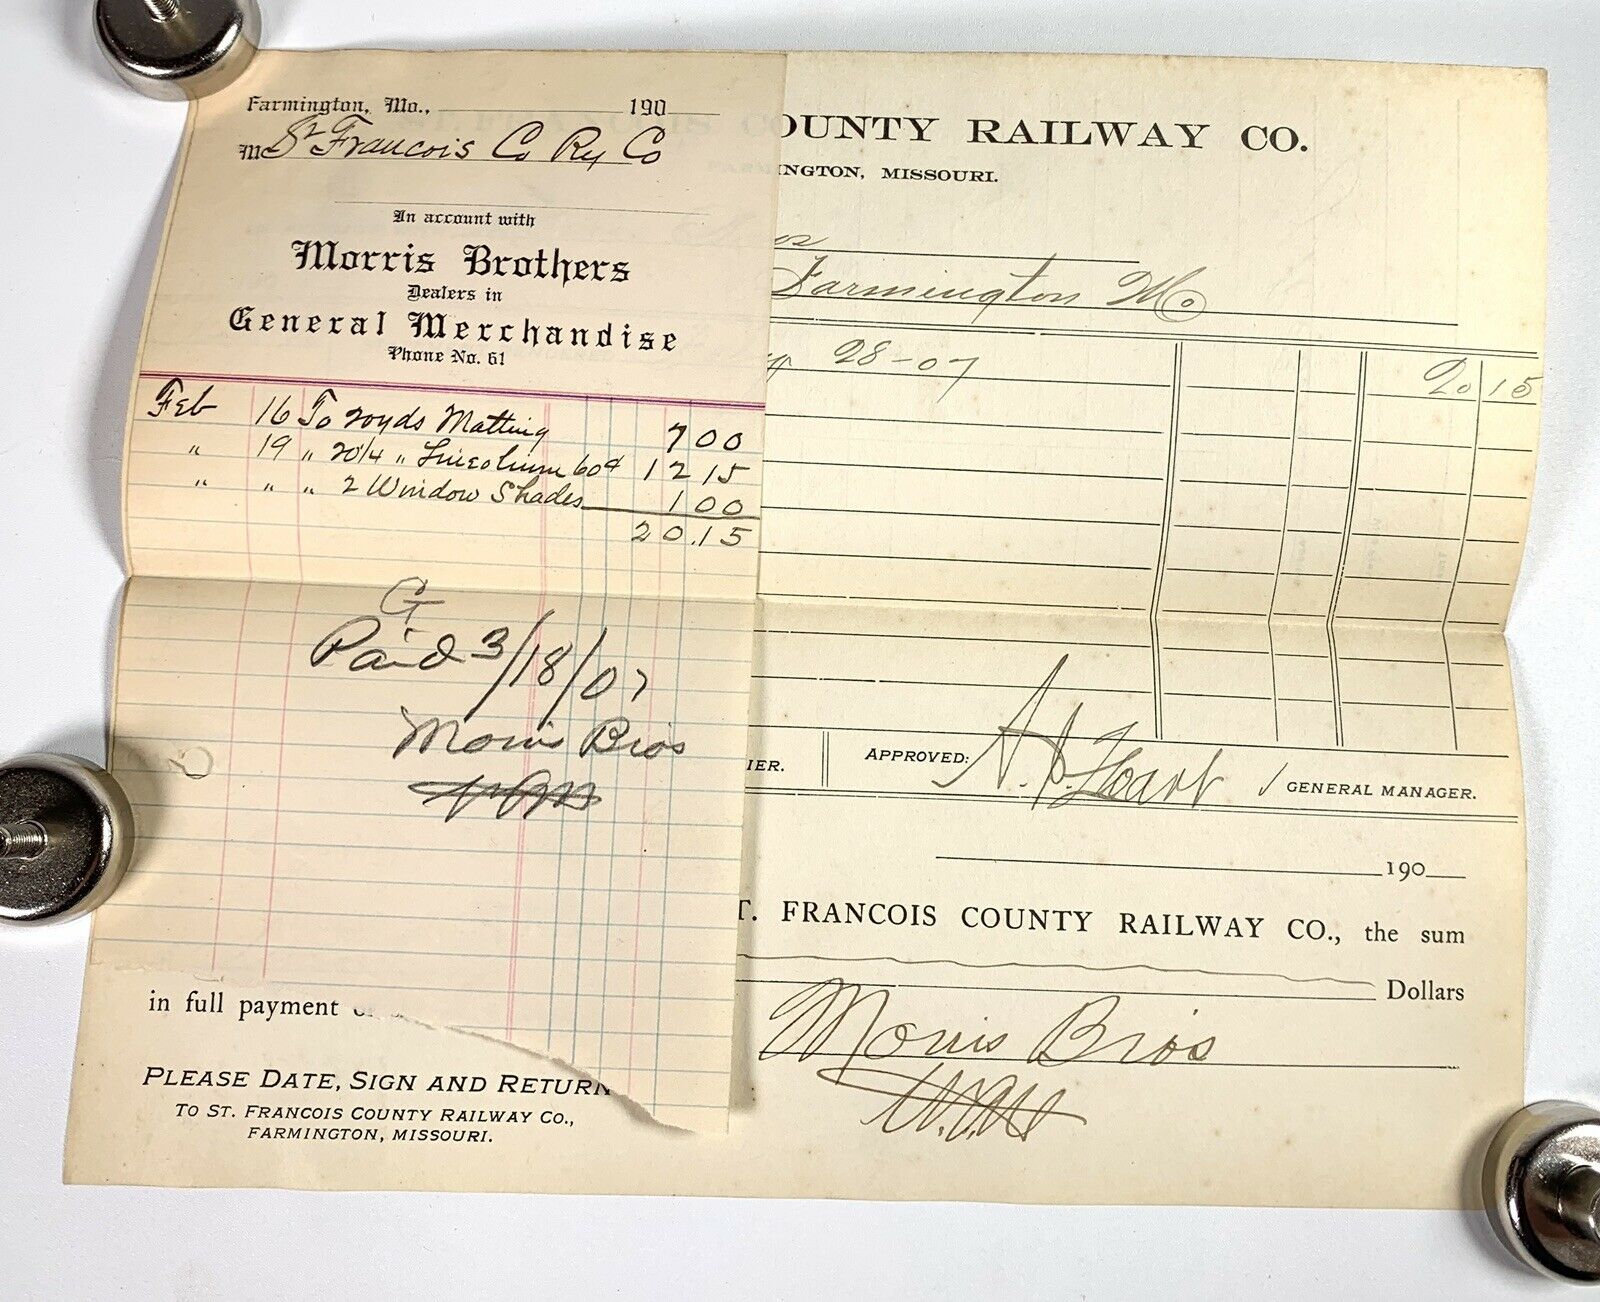 Farmington, Mo., 190
M St Francois Co Ry Co
In account with
Morris Brothers
Dealers in
General Merchandise
Phone No. 61
Feb 16 To 20 yds Matting 7 00
" 19 " 20 1/4 " Linoleum 60¢ 12 15
" " " 2 Window Shades 1 00
20.15
Paid 3/18/07
Morris Bros
OUNTY RAILWAY CO.
INGTON, MISSOURI.
Farmington Mo
28-07 20 15
IER. APPROVED: GENERAL MANAGER.
190
T. FRANCOIS COUNTY RAILWAY CO., the sum
Dollars
Morris Bros
in full payment
PLEASE DATE, SIGN AND RETURN
TO ST. FRANCOIS COUNTY RAILWAY CO.,
FARMINGTON, MISSOURI.